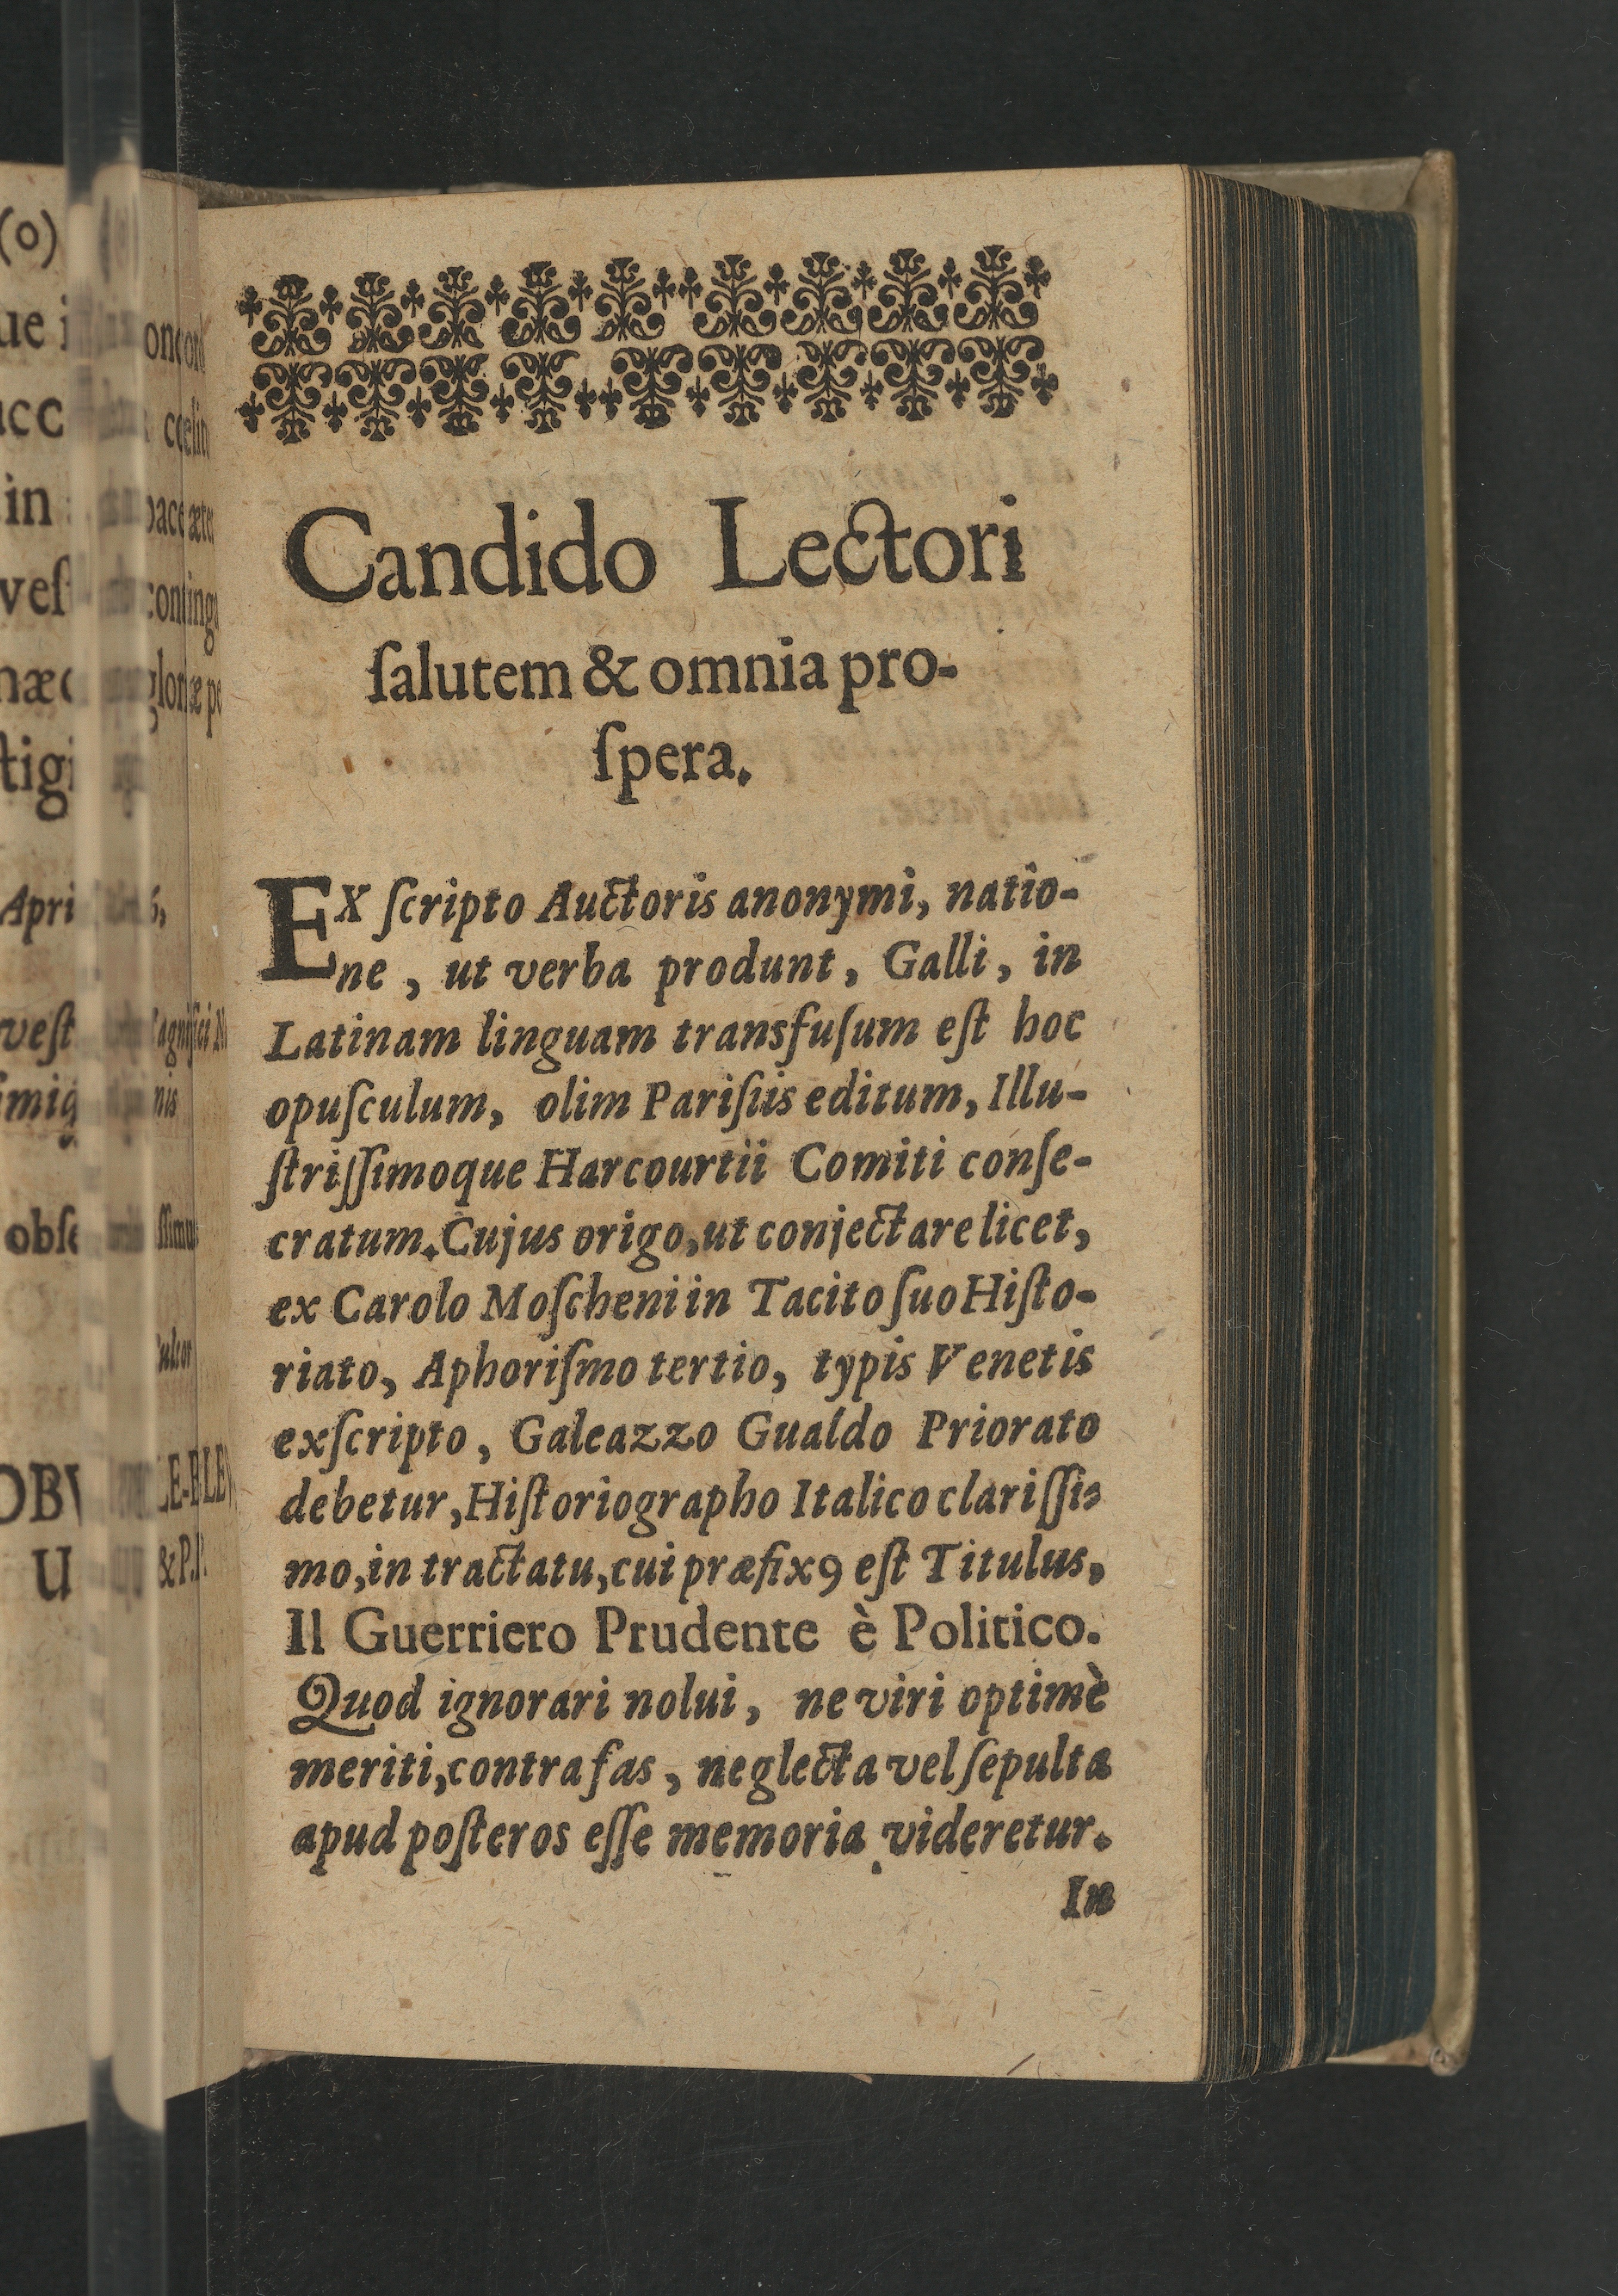 Candido Lectori
ſalutem & omnia pro-
ſpera.
EX ſcripto Auctoris anonymi, natio-
ne, ut verba produnt, Galli, in
Latinam linguam transfuſum eſt hoc
opuſculum, olim Pariſiis editum, Illu-
ſtriſſimoque Harcourtii Comiti conſe-
cratum. Cujus origo, ut conjectare licet,
ex Carolo Moſcheni in Tacito ſuo Hiſto-
riato, Aphoriſmo tertio, typis Venetis
exſcripto, Galeazzo Gualdo Priorato
debetur, Hiſtoriographo Italico clariſſi-
mo, in tractatu, cui præfixꝰ eſt Titulus,
Il Guerriero Prudente è Politico.
Quod ignorari nolui, ne viri optimè
meriti, contra fas, neglecta vel ſepulta
apud poſteros eſſe memoria videretur.
In